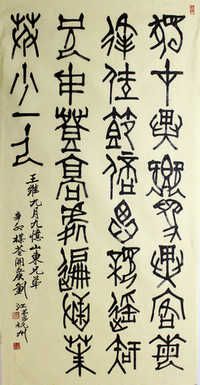 獨在異鄉為異客每
逢佳節倍思親遙知
兄弟登高處遍插茱
萸少一人
王維九月九憶山東兄弟
辛卯 劉
江